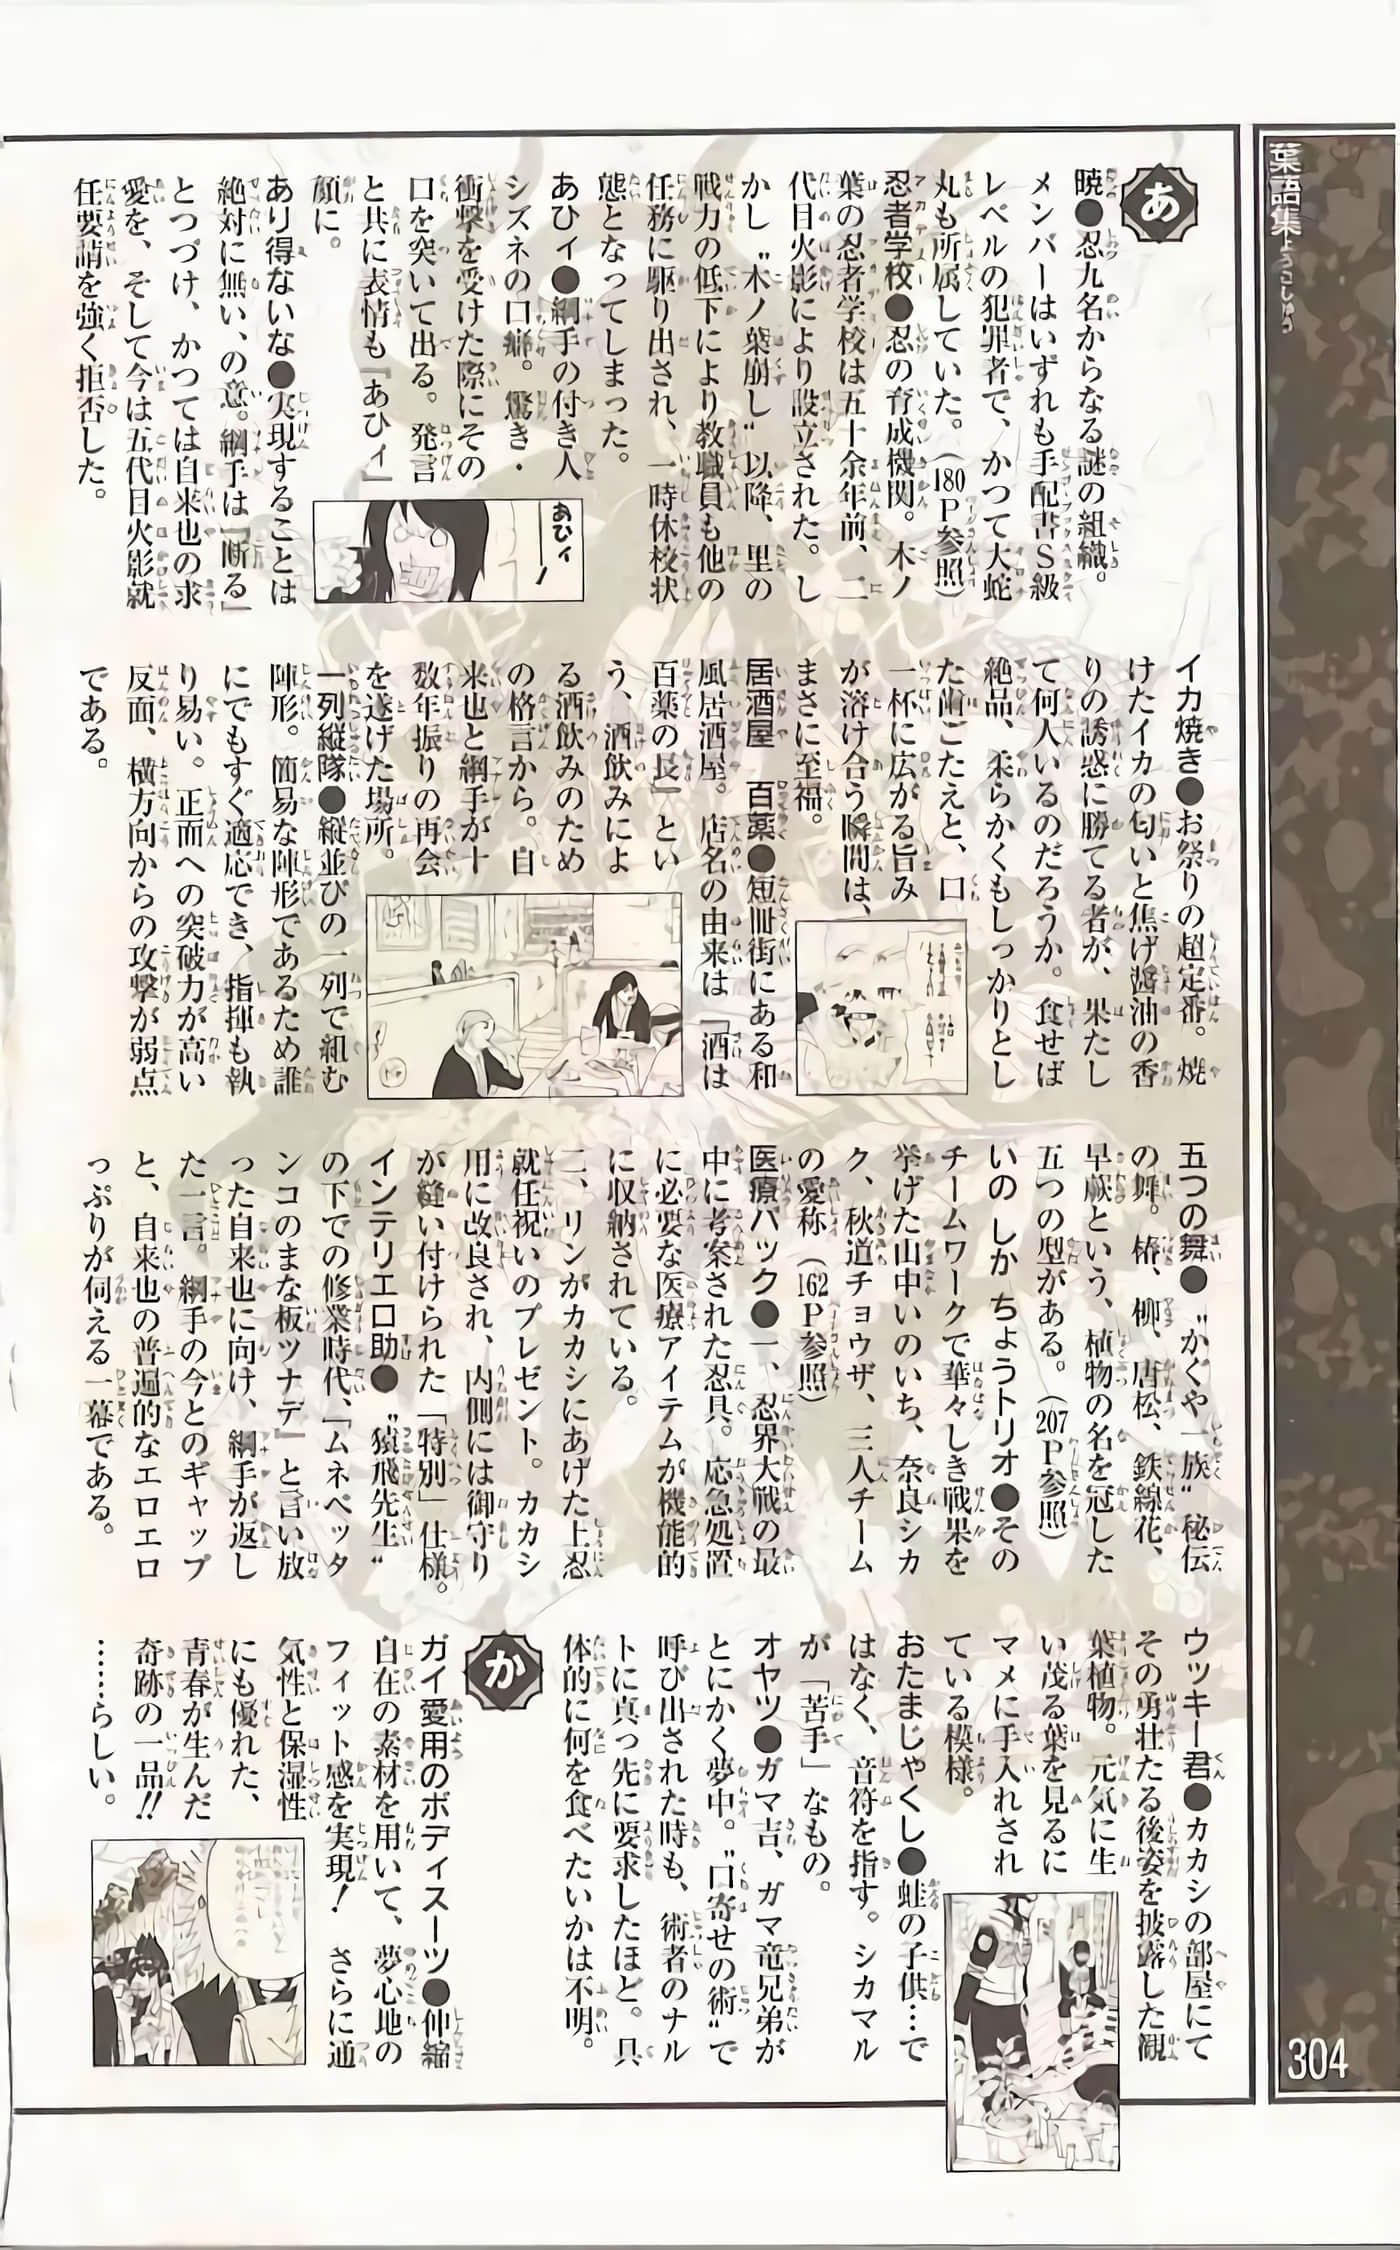 葉語集ようごしゅう
304
あ
暁●忍九名からなる謎の組織。
メンバーはいずれも手配書S級
レベルの犯罪者で、かつて大蛇
丸も所属していた。(180P参照)
忍者学校●忍の育成機関。木ノ
葉の忍者学校は五十余年前、二
代目火影により設立された。し
かし〝木ノ葉崩し〟以降、里の
戦力の低下により教職員も他の
任務に駆り出され、一時休校状
態となってしまった。
あひィ●綱手の付き人
シズネの口癖。驚き・
衝撃を受けた際にその
口を突いて出る。発言
と共に表情も『あひィ』
顔に。
あひィ
あり得ないな●実現することは
絶対に無い、の意。綱手は『断る』
とつづけ、かつては自来也の求
愛を、そして今は五代目火影就
任要請を強く拒否した。
イカ焼き●お祭りの超定番。焼
けたイカの匂いと焦げ醤油の香
りの誘惑に勝てる者が、果たし
て何人いるのだろうか。食せば
絶品、柔らかくもしっかりとし
た歯ごたえと、口
一杯に広がる旨み
が溶け合う瞬間は、
まさに至福。
居酒屋 百薬●短冊街にある和
風居酒屋。店名の由来は『酒は
百薬の長』とい
う、酒飲みによ
る酒飲みのため
の格言から。自
来也と綱手が十
数年振りの再会
を遂げた場所。
一列縦隊●縦並びの一列で組む
陣形。簡易な陣形であるため誰
にでもすぐ適応でき、指揮も執
り易い。正面への突破力が高い
反面、横方向からの攻撃が弱点
である。
五つの舞●〝かぐや一族〟秘伝
の舞。椿、柳、唐松、鉄線花、
早蕨という、植物の名を冠した
五つの型がある。(207P参照)
いの しか ちょうトリオ●その
チームワークで華々しき戦果を
挙げた山中いのいち、奈良シカ
ク、秋道チョウザ、三人チーム
の愛称(162P参照)
医療パック●一、忍界大戦の最
中に考案された忍具。応急処置
に必要な医療アイテムが機能的
に収納されている。
二、リンがカカシにあげた上忍
就任祝いのプレゼント。カカシ
用に改良され、内側には御守り
が縫い付けられた「特別」仕様。
インテリエロ助●〝猿飛先生〟
の下での修業時代、「ムネペッタ
ンコのまな板ツナデ」と言い放
った自来也に向け、綱手が返し
た一言。綱手の今とのギャップ
と、自来也の普遍的なエロエロ
っぷりが伺える一幕である。
ウッキー君●カカシの部屋にて
その勇壮たる後姿を披露した観
葉植物。元気に生
い茂る葉を見るに
マメに手入れされ
ている模様。
おたまじゃくし●蛙の子供…で
はなく、音符を指す。シカマル
が「苦手」なもの。
オヤツ●ガマ吉、ガマ竜兄弟が
とにかく夢中。〝口寄せの術〟で
呼び出された時も、術者のナル
トに真っ先に要求したほど。具
体的に何を食べたいかは不明。
か
ガイ愛用のボディスーツ●伸縮
自在の素材を用いて、夢心地の
フィット感を実現! さらに通
気性と保湿性
にも優れた、
青春が生んだ
奇跡の一品!!
……らしい。